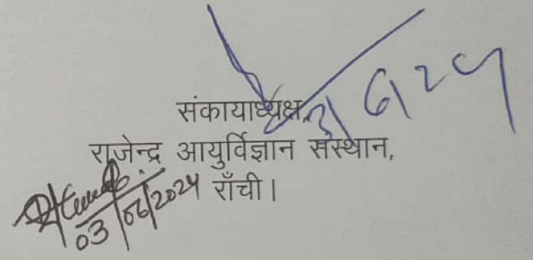 3/6/24
संकायाध्यक्ष,
राजेन्द्र आयुर्विज्ञान संस्थान,
राँची।
03/06/2024